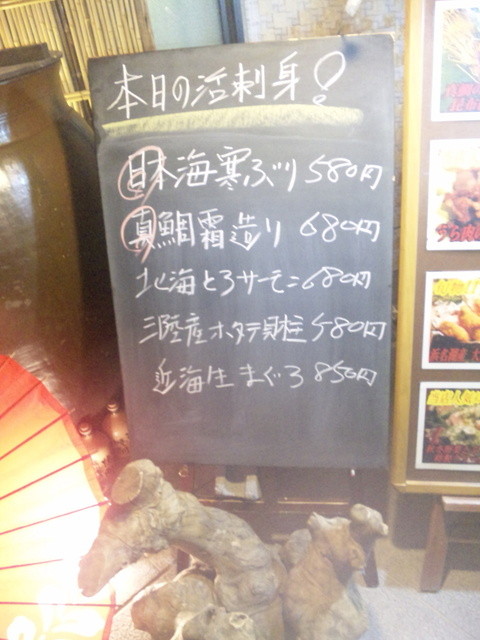 本日の活刺身!
日本海寒ぶり 580円
真鯛霜造り 680円
北海とろサーモン 680円
三陸産ホタテ貝柱 580円
近海生まぐろ 850円